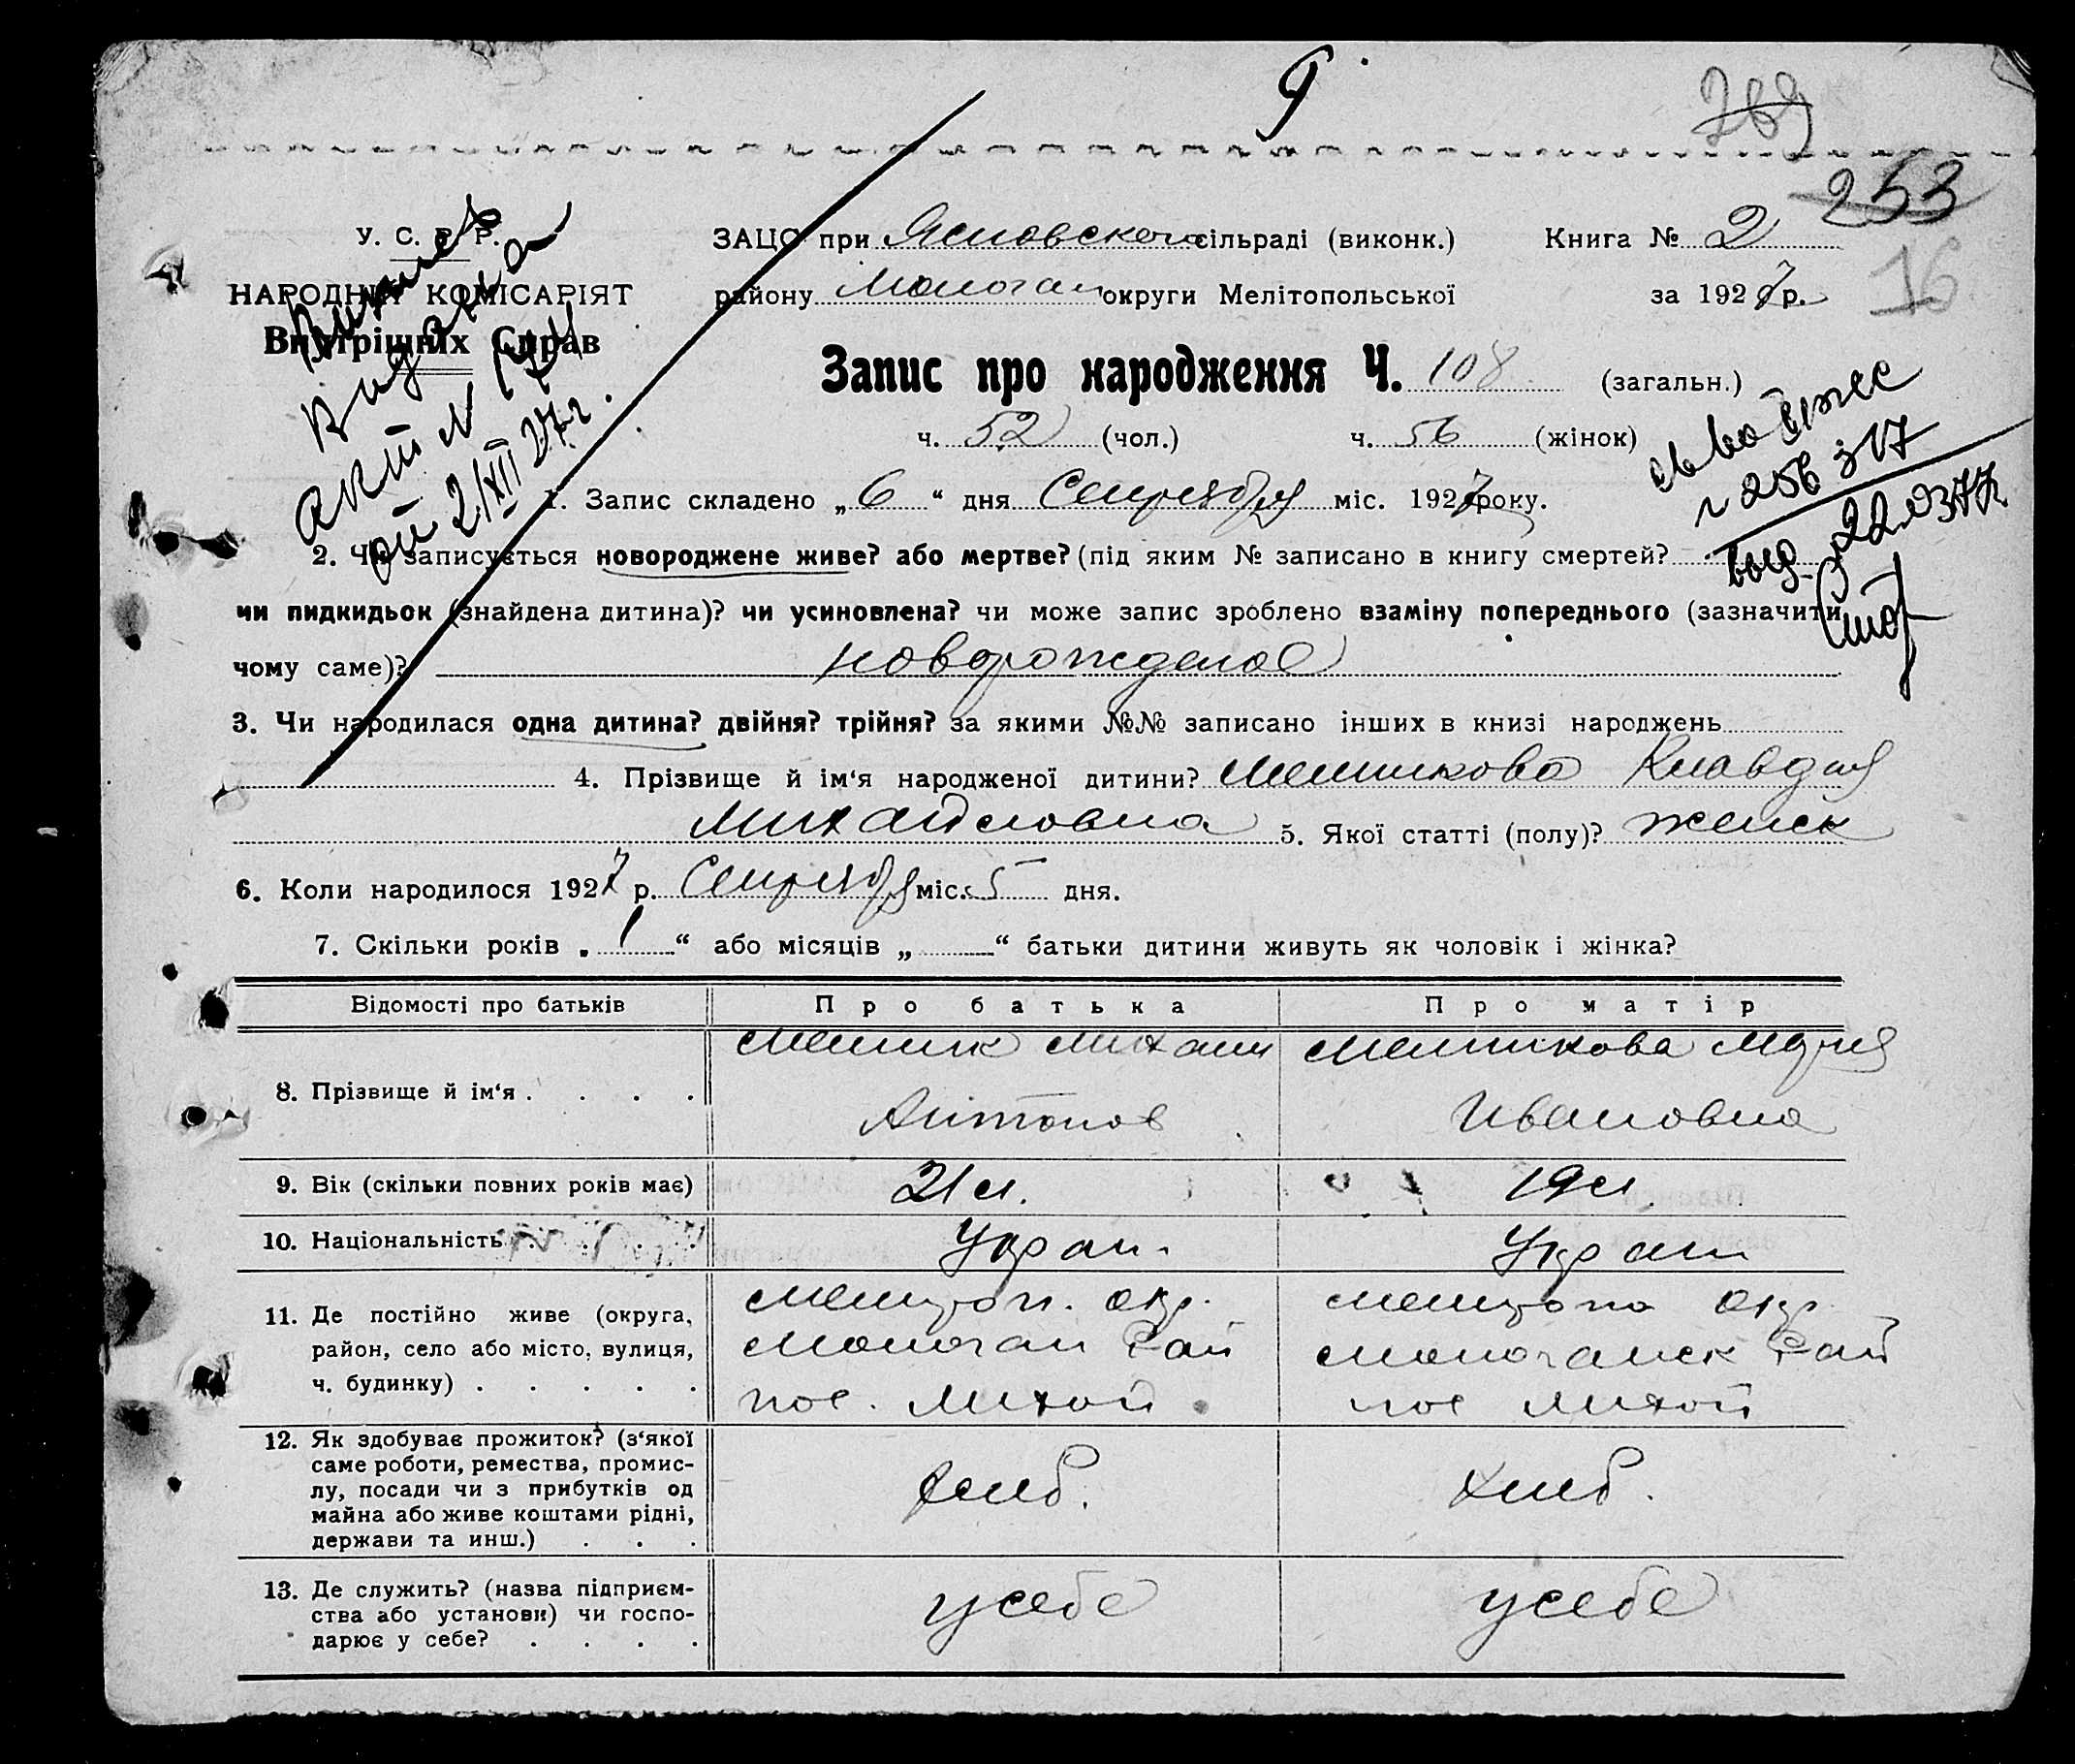 9
769
253
16
У. С. Р. Р.
НАРОДНИЙ КОМІСАРІЯТ
Внутрішніх Справ
ЗАЦС при Ясиовского сільраді (виконк.) Книга № 2
району Молочан округи Мелітопольської за 1927 р.
Запис про народження Ч. 108 (загальн.)
ч. 52 (чол.) ч. 56 (жінок)
акт №
от 2/XII 27 г.
1. Запис складено „ 6 “ дня Сентября міс. 1927 року.
2. Чи записується новороджене живе? або мертве? (під яким № записано в книгу смертей?
чи пидкидьок (знайдена дитина)? чи усиновлена? чи може запис зроблено взаміну попереднього (зазначити
чому саме)? новорожденое
3. Чи народилася одна дитина? двійня? трійня? за якими №№ записано інших в книзі народжень
4. Прізвище й ім‘я народженої дитини? Мешикова Клавдия
Михайловна 5. Якої статті (полу)? женск
6. Коли народилося 1927 р. Сентября міс. 5 дня.
7. Скільки років „ 1 “ або місяців „ “ батьки дитини живуть як чоловік і жінка?
Відомості про батьків Про батька Про матір
8. Прізвище й ім‘я . . . . Мешик Михаил Мешикова Мария
Антонов Ивановна
9. Вік (скільки повних років має) 21 л. 19 л
10. Національність . . . . Украи. Украи
11. Де постійно живе (округа, Мелитоп. окр. Мелитопо окр.
район, село або місто, вулиця, Молочан Рай Молочанск Рай
ч. будинку) . . . . . пос. Лихой пос Лихой
12. Як здобуває прожиток? (з‘якої
саме роботи, ремества, промис-
лу, посади чи з прибутків од хлеб. хлеб.
майна або живе коштами рідні,
держави та инш.) . . .
13. Де служить? (назва підприєм-
ства або установи) чи госпо- у себе у себе
дарює у себе? . . . .